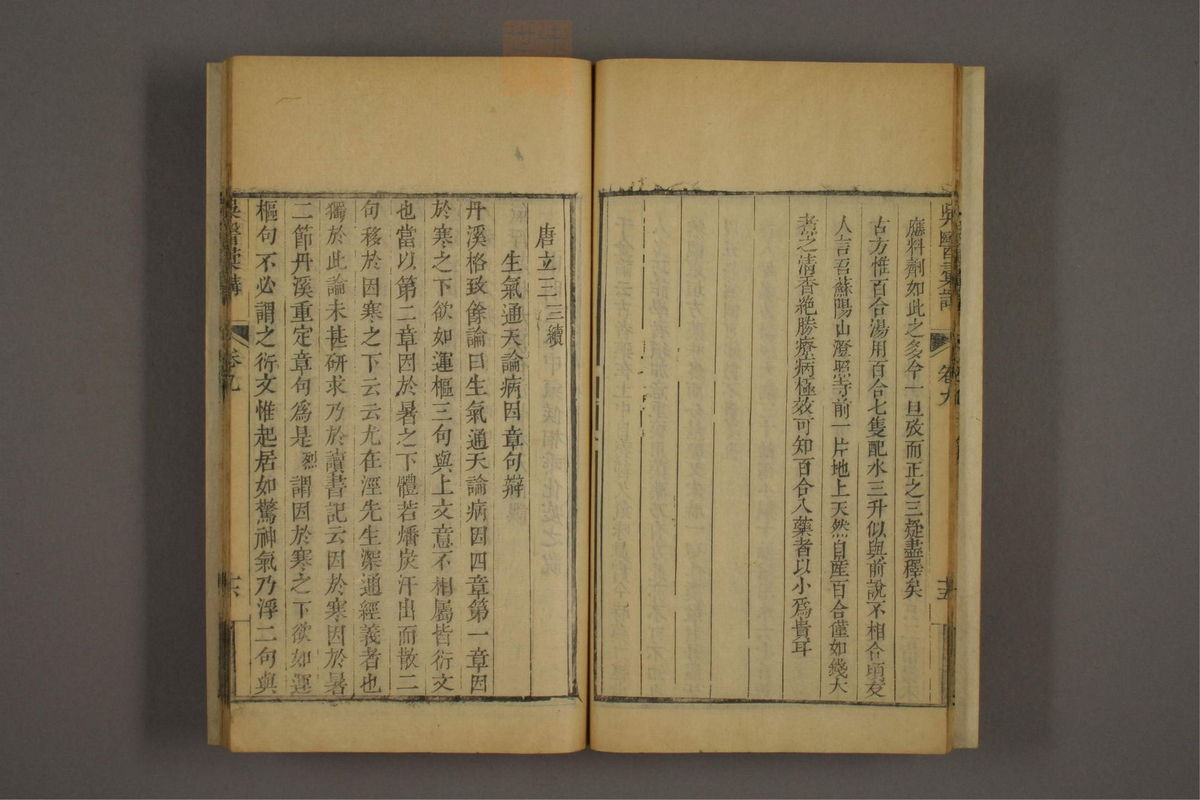 吳醫彙講
卷九
十五
應料劑如此之多今一旦攷而正之三疑盡釋矣
古方惟百合湯用百合七隻配水三升似與前說不相合頃友
人言吾蘇陽山澄照寺前一片地上天然自産百合僅如錢大
者之清香絶勝療病極效可知百合入藥者以小爲貴耳
唐立三三續
生氣通天論病因章句辯
丹溪格致餘論曰生氣通天論病因四章第一章因
於寒之下欲如運樞三句與上文意不相屬皆衍文
也當以第二章因於暑之下體若燔炭汗出而散二
句移於因寒之下云云尤在涇先生深通經義者也
獨於此論未甚研求乃於讀書記云因於寒因於暑
二節丹溪重定章句爲是烈謂因於寒之下欲如運
樞句不必謂之衍文惟起居如驚神氣乃浮二句與
吳醫彙講
卷九
十六